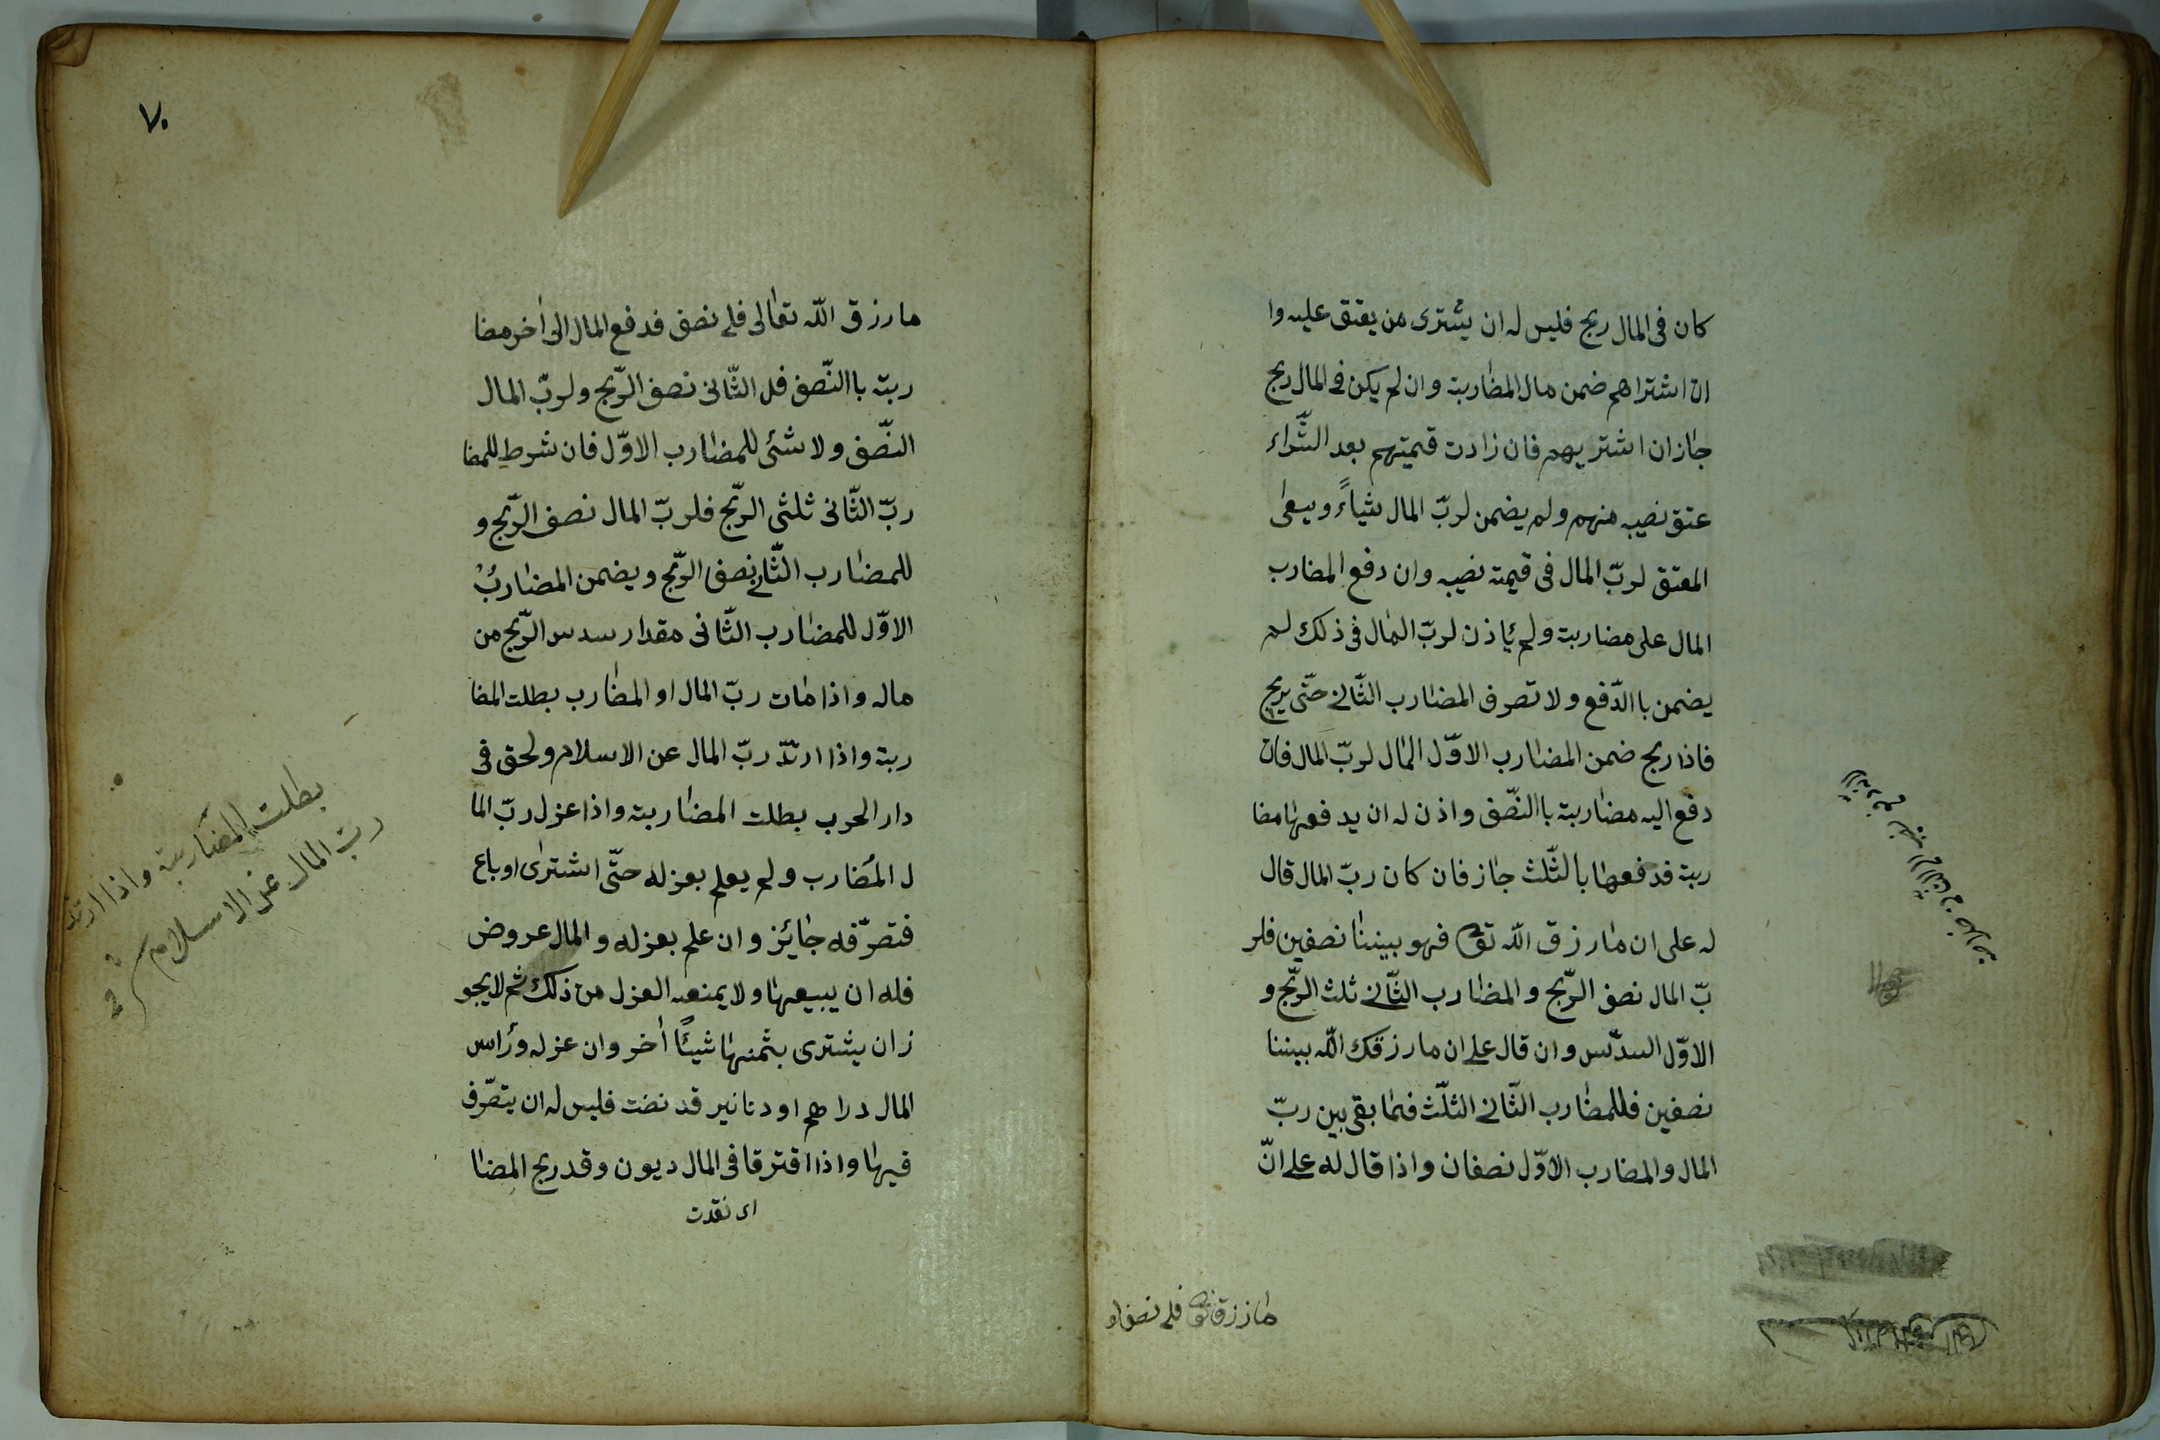 كان فى المال ربح فليس له ان يشترى من يعتق عليه وا
ان اشتراهم ضمن مال المضاربة وان لم يكن فى المال ربح
جاز ان اشتريهم فان زادت قيمتهم بعد الشّراء
عتق نصيبه منهم ولم يضمن لربّ المال شياءً ويسعى
المعتق لربّ المال فى قيمة نصيبه وان دفع المضارب
المال على مضاربة ولم ئاذن لربّ المال فى ذلك لم
يضمن باالدّفع ولا تصرف المضارب الثّانى حتّى يربح
فاذا ربح ضمن المضارب الاوّل المال لربّ المال فان
دفع اليه مضاربة باالنصّف واذن له ان يدفعها مضا
ربة فدفعها بالثّلث جاز فان كان ربّ المال قال
له على ان مارزق اللّه تع فهو بيننا نصفين فلر
بّ المال نصف الرّبح و المضارب الثّانى ثلث الرّبح و
الاوّل السدّس وان قال على ان مارزقك اللّه بيننا
نصفين فللمضارب الثّانى الثلّث فما بقى بين ربّ
المال والمضارب الاوّل نصفان واذا قال له على انّ
مارزق تع فلى نصف او
٧٠
مارزق اللّه تعالى فلى نصف فدفع المال الى أخر مضا
ربة باالنّصف فل الثّانى نصف الرّبح ولربّ المال
النّصف ولا شئ للمضارب الاوّل فان شرط للمضا
ربّ الثّانى ثلثى الرّبح فلربّ المال نصف الرّبح و
للمضارب الثّانى نصف الرّبح ويضمن المضاربُ
الاوّل للمضارب الثّانى مقدار سدس الرّبح من
ماله واذا مات ربّ المال او المضارب بطلت المضا
ربة واذا ارتدّ ربّ المال عن الاسلام ولحق فى
دار الحرب بطلت المضاربة واذا عزل ربّ الما
ل المُضارب ولم يعلم بعزله حتّى اشترى او باع
فتصرّفه جائز وان علم بعزله والمال عروض
فله ان يبيعها ولا يمنعه العزل من ذلك ثم لا يجو
زان يشترى بثمنها شيئًا أخر وان عزله ورٔاس
المال دراهم او دنانير قد نضت فليس له ان يتصّرف
فيها واذا افترقا فى المال ديون وقد ربح المضا
اى نقدت
بطلت المضاربة واذا ارتد
ربّ المال عن الاسلام